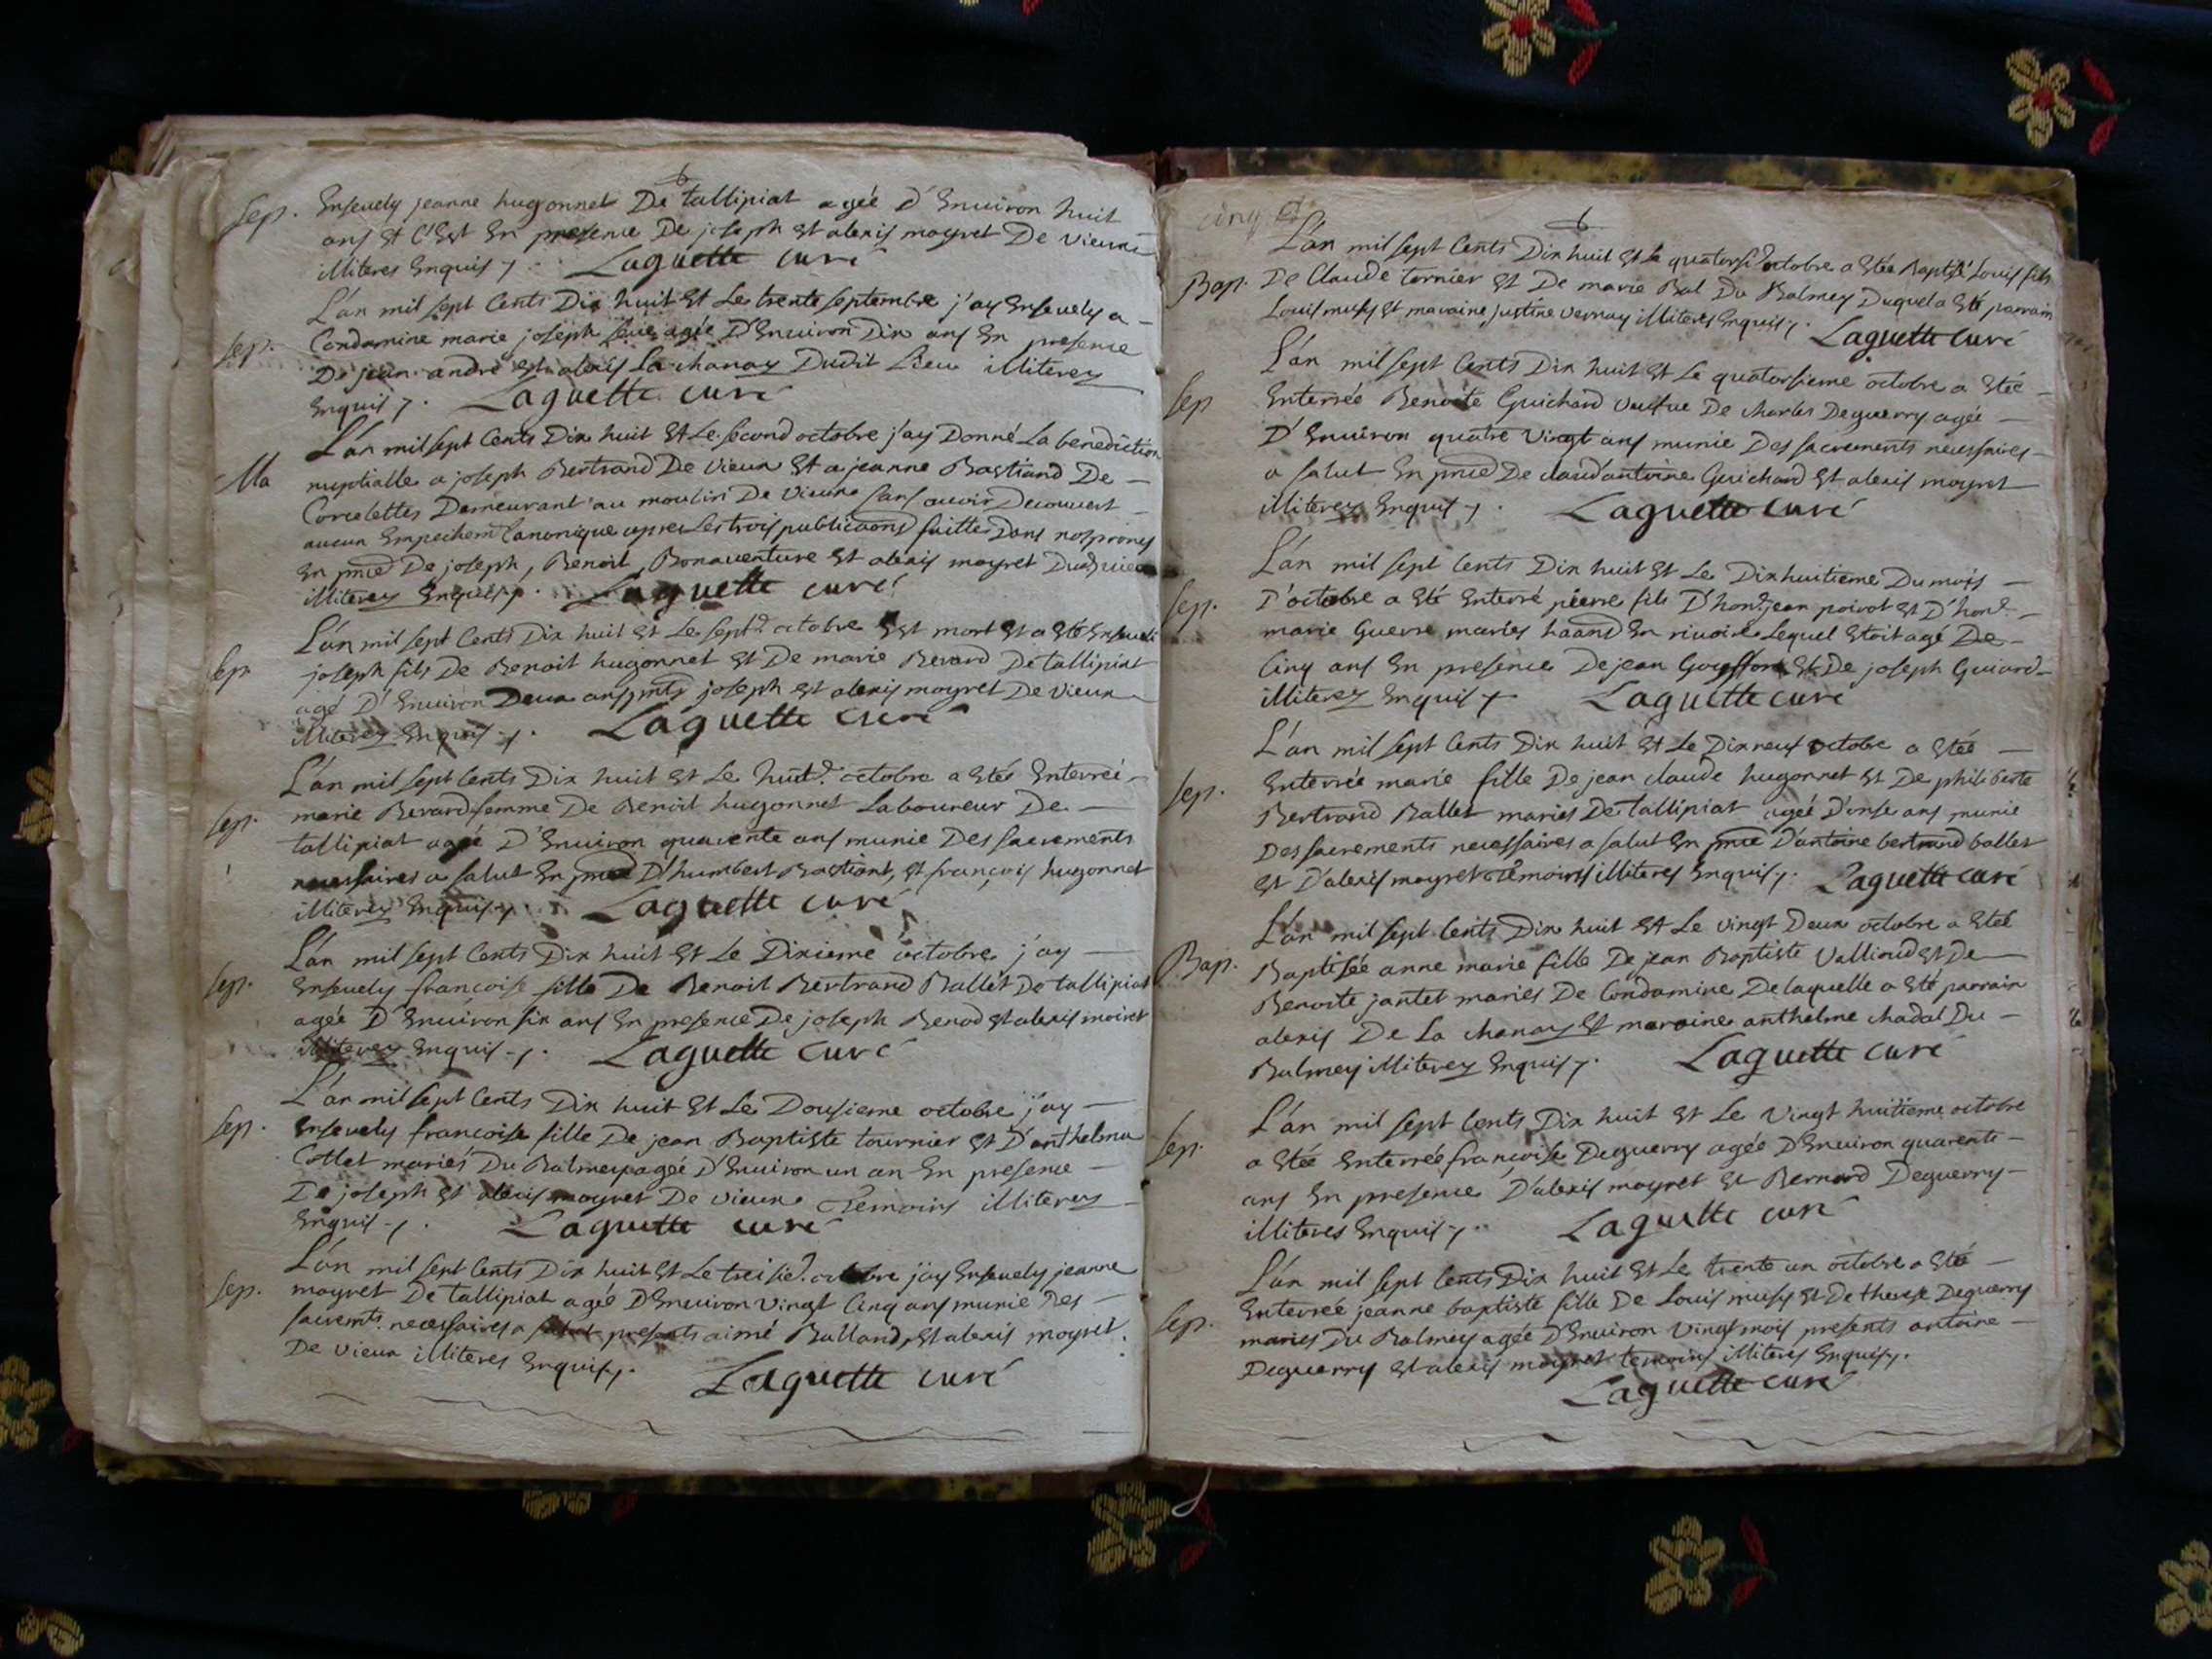 Sep. Ensevely jeanne hugonnet De tallipiat agée D'Environ huit
ans Et C'Est En presence De joseph Et alexis moyret De vieux
illiteres Enquis Laguette curé
L'an mil sept Cents Dix huit Et Le trente septembre j'ay Ensevely a
Sep. Condamine marie joseph agée D'Environ Dix ans En presence
De jean andré Et alexis La chanay Dudit Lieu illiterez
Enquis Laguette curé
L'an mil sept Cents Dix huit Et Le second octobre j'ay Donné La benediction
Ma nuptialle a joseph Bertrand De vieux Et a jeanne Bastiand De
Corcelettes Demeurant au moulin De vieux sans avoir Decouvert
aucun Empechem Canonique apres Les trois publicaons faittes Dans nos prones
En pnce De joseph, Benoit, Bonaventure Et alexis moyret Dud vieux
illiterez Enquis Laguette curé
L'an mil sept Cents Dix huit Et Le sept.e octobre Est mort Et a Eté Enseveli
Sep. joseph fils De Benoit hugonnet Et De marie Berard De tallipiat
agé D'Environ Deux ans pnts joseph Et alexis moyret De vieux
illiterez Enquis Laguette curé
L'an mil sept Cents Dix huit Et Le huit.e octobre a Etée Enterrée
Sep. marie Berard femme De Benoit hugonnet Laboureur De
tallipiat agée D'Environ quarente ans munie Des sacrements
necessaires a salut En pnce D'humbert Bastiant, Et françois hugonnet
illiterez Enquis Laguette curé
L'an mil sept Cents Dix huit Et Le Dixieme octobre j'ay
Sep. Ensevely francoise fille De Benoit Bertrand Ballet De tallipiat
agée D'Environ six ans En presence De joseph Benod Et alexis moiret
illiterez Enquis Laguette curé
L'an mil sept Cents Dix huit Et Le Dousieme octobre j'ay
Sep. Ensevely francoise fille De jean Baptiste tournier Et D'anthelma
Collet mariés Du Balmey agée D'Environ un an En presence
De joseph Et alexis moyret De vieux temoins illiterez
Enquis Laguette curé
L'an mil sept Cents Dix huit Et Le treisie.e octobre j'ay Ensevely jeanne
Sep. moyret De tallipiat agée D'Environ vingt Cinq ans munie Des
sacremts necessaires a salut presents aimé Balland, Et alexis moyret
De vieux illiteres Enquis Laguette curé
cinq
L'an mil sept Cents Dix huit Et le quatorsi.e octobre a Etée Baptisé Louis fils
Bap. De Claude tornier Et De marie Bal Du Balmey Duquel a Eté parrain
Louis musy Et maraine justine vernay illiteres Enquis Laguette curé
L'an mil sept Cents Dix huit Et Le quatorsieme octobre a Etée
Sep Enterrée Benoite Guichard veufue De charles Deguerry agée
D'Environ quatre vingt ans munie Des sacrements necessaires
a salut En pnce De claud'antoine Guichard Et alexis moyret
illiterez Enquis Laguette curé
L'an mil sept Cents Dix huit Et Le Dixhuitieme Du mois
Sep. D'octobre a Eté Enterré pierre fils D'hon.e jean poirot Et D'hon.e
marie Guerre mariés En rivoire Lequel Etoit agé De
Cinq ans En presence De jean Et De joseph Guiard
illiterez Enquis Laguette curé
L'an mil sept Cents Dix huit Et Le Dixneuf octobre a Etée
Sep. Enterrée marie fille De jean claude hugonnet Et De philiberte
Bertrand Ballet mariés De tallipiat agée D'onse ans munie
Des sacrements necessaires a salut En pnce D'antoine bertrand ballet
Et D'alexis moyret temoins illiteres Enquis Laguette curé
L'an mil sept Cents Dix huit Et Le vingt Deux octobre a Etée
Bap. Baptisée anne marie fille De jean Baptiste Valliond Et De
Benoite jantet mariés De Condamine De laquelle a Eté parrain
alexis De La chanay Et maraine anthelme chadal Du
Balmey illiterez Enquis Laguette curé
L'an mil sept Cents Dix huit Et Le vingt huitieme octobre
Sep. a Etée Enterrée francoise Deguerry agée D'Environ quarente
ans En presence D'alexis moyret Et Bernard Deguerry
illiteres Enquis Laguette curé
L'an mil sept Cents Dix huit Et Le trente un octobre a Eté
Sep. Enterrée jeanne baptiste fille De Louis musy Et De therese Deguerry
mariés Du Balmey agée D'Environ vingt mois presents antoine
Deguerry Et alexis moyret temoins illiteres Enquis
Laguette curé